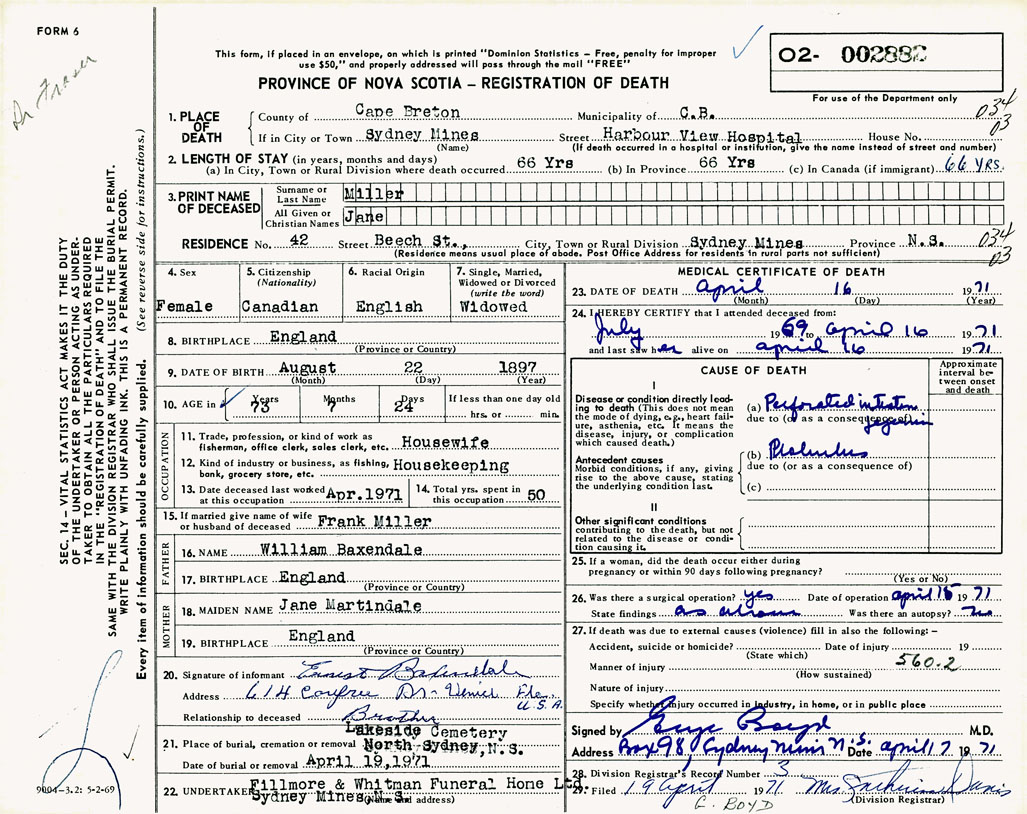 FORM 6
Dr Fraser
This form, if placed in an envelope, on which is printed "Dominion Statistics – Free, penalty for improper
use $50," and properly addressed will pass through the mail "FREE"
O2- 002882
PROVINCE OF NOVA SCOTIA – REGISTRATION OF DEATH
For use of the Department only
034
03
1. PLACE OF DEATH
County of Cape Breton Municipality of C.B.
If in City or Town Sydney Mines Street Harbour View Hospital House No.
(Name) (If death occurred in a hospital or institution, give the name instead of street and number)
2. LENGTH OF STAY (in years, months and days)
(a) In City, Town or Rural Division where death occurred 66 Yrs (b) In Province 66 Yrs (c) In Canada (if immigrant) 66 YRS.
3. PRINT NAME OF DECEASED
Surname or Last Name Miller
All Given or Christian Names Jane
RESIDENCE No. 42 Street Beech St., City, Town or Rural Division Sydney Mines Province N.S.
(Residence means usual place of abode. Post Office Address for residents in rural parts not sufficient)
034
03
4. Sex
Female
5. Citizenship
(Nationality)
Canadian
6. Racial Origin
English
7. Single, Married,
Widowed or Divorced
(write the word)
Widowed
8. BIRTHPLACE England
(Province or Country)
9. DATE OF BIRTH August 22 1897
(Month) (Day) (Year)
10. AGE in Years Months Days If less than one day old
73 7 24 hrs. or min.
OCCUPATION
11. Trade, profession, or kind of work as
fisherman, office clerk, sales clerk, etc. Housewife
12. Kind of industry or business, as fishing, Housekeeping
bank, grocery store, etc.
13. Date deceased last worked at this occupation Apr.1971
14. Total yrs. spent in this occupation 50
15. If married give name of wife
or husband of deceased Frank Miller
FATHER
16. NAME William Baxendale
17. BIRTHPLACE England
(Province or Country)
MOTHER
18. MAIDEN NAME Jane Martindale
19. BIRTHPLACE England
(Province or Country)
20. Signature of informant Ernest Baxendale
Address 614 Dr - Fla.
U.S.A.
Relationship to deceased Brother
Lakeside Cemetery
21. Place of burial, cremation or removal North Sydney, N.S.
Date of burial or removal April 19,1971
22. UNDERTAKER Fillmore & Whitman Funeral Home Ltd.
Sydney Mines N.S.
(Name and address)
MEDICAL CERTIFICATE OF DEATH
23. DATE OF DEATH April 16 1971
(Month) (Day) (Year)
24. I HEREBY CERTIFY that I attended deceased from:
July 1969 to April 16 1971
and last saw her alive on April 16 1971
CAUSE OF DEATH
Approximate
interval be-
tween onset
and death
I
Disease or condition directly lead-
ing to death (This does not mean
the mode of dying, e.g., heart fail-
ure, asthenia, etc. It means the
disease, injury, or complication
which caused death.)
(a) Perforated
due to (or as a consequence of)
Antecedent causes
Morbid conditions, if any, giving
rise to the above cause, stating
the underlying condition last.
(b)
due to (or as a consequence of)
(c)
II
Other significant conditions
contributing to the death, but not
related to the disease or condi-
tion causing it.
25. If a woman, did the death occur either during
pregnancy or within 90 days following pregnancy?
(Yes or No)
26. Was there a surgical operation? yes Date of operation April 15 1971
State findings as above Was there an autopsy? no
27. If death was due to external causes (violence) fill in also the following: –
Accident, suicide or homicide? Date of injury 19
(State which)
560.2
Manner of injury
(How sustained)
Nature of injury
Specify whether injury occurred in industry, in home, or in public place
Signed by Boyd M.D.
Address Box 98, Sydney Mines N.S. Date April 17 1971
28. Division Registrar's Record Number 3
29. Filed 19 April 1971 Mrs. Davis
(Division Registrar)
G. BOYD
SEC. 14 – VITAL STATISTICS ACT MAKES IT THE DUTY
OF THE UNDERTAKER OR PERSON ACTING AS UNDER-
TAKER TO OBTAIN ALL THE PARTICULARS REQUIRED
IN THE "REGISTRATION OF DEATH" AND TO FILE THE
SAME WITH THE DIVISION REGISTRAR WHO SHALL ISSUE THE BURIAL PERMIT.
WRITE PLAINLY WITH UNFADING INK. THIS IS A PERMANENT RECORD.
Every item of information should be carefully supplied. (See reverse side for instructions.)
9004–3.2: 5-2-69